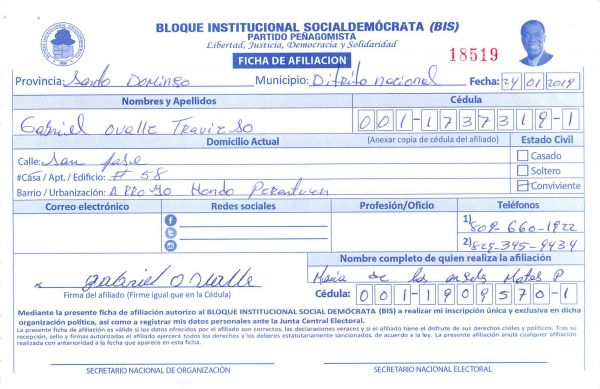 BLOQUE INSTITUCIONAL SOCIALDEMÓCRATA (BIS)
PARTIDO PEÑAGOMISTA
Libertad, Justicia, Democracia y Solidaridad
FICHA DE AFILIACION
18519
Provincia: Santo Domingo Municipio: Distrito nacional Fecha: 24 01 2019
Nombres y Apellidos Cédula
Gabriel Ovalle Travieso 001-1737319-1
Domicilio Actual (Anexar copia de cédula del afiliado) Estado Civil
Calle: San José Casado
#Casa / Apt. / Edificio: # 58 Soltero
Barrio / Urbanización: Arroyo Hondo Conviviente
Correo electrónico Redes sociales Profesión/Oficio Teléfonos
1) 809-660-1922
2) 829-345-9434
Nombre completo de quien realiza la afiliación
gabriel Ovalle María de los angeles Mates P
Firma del afiliado (Firme igual que en la Cédula) Cédula: 001-1909570-1
Mediante la presente ficha de afiliación autorizo al BLOQUE INSTITUCIONAL SOCIAL DEMÓCRATA (BIS) a realizar mi inscripción única y exclusiva en dicha
organización política, así como a registrar mis datos personales ante la Junta Central Electoral.
La presente ficha de afiliación es válida si los datos ofrecidos por el afiliado son correctos, las declaraciones veraces y si el afiliado tiene el disfrute de sus derechos civiles y políticos. Tras su
recepción, sello y firmas autorizadas el afiliado ejercerá todos los derechos y los deberes estatutariamente sancionados, de acuerdo a la ley. La presente afiliación anula cualquier afiliación
realizada con anterioridad a la fecha que aparece en esta ficha.
SECRETARIO NACIONAL DE ORGANIZACIÓN SECRETARIO NACIONAL ELECTORAL